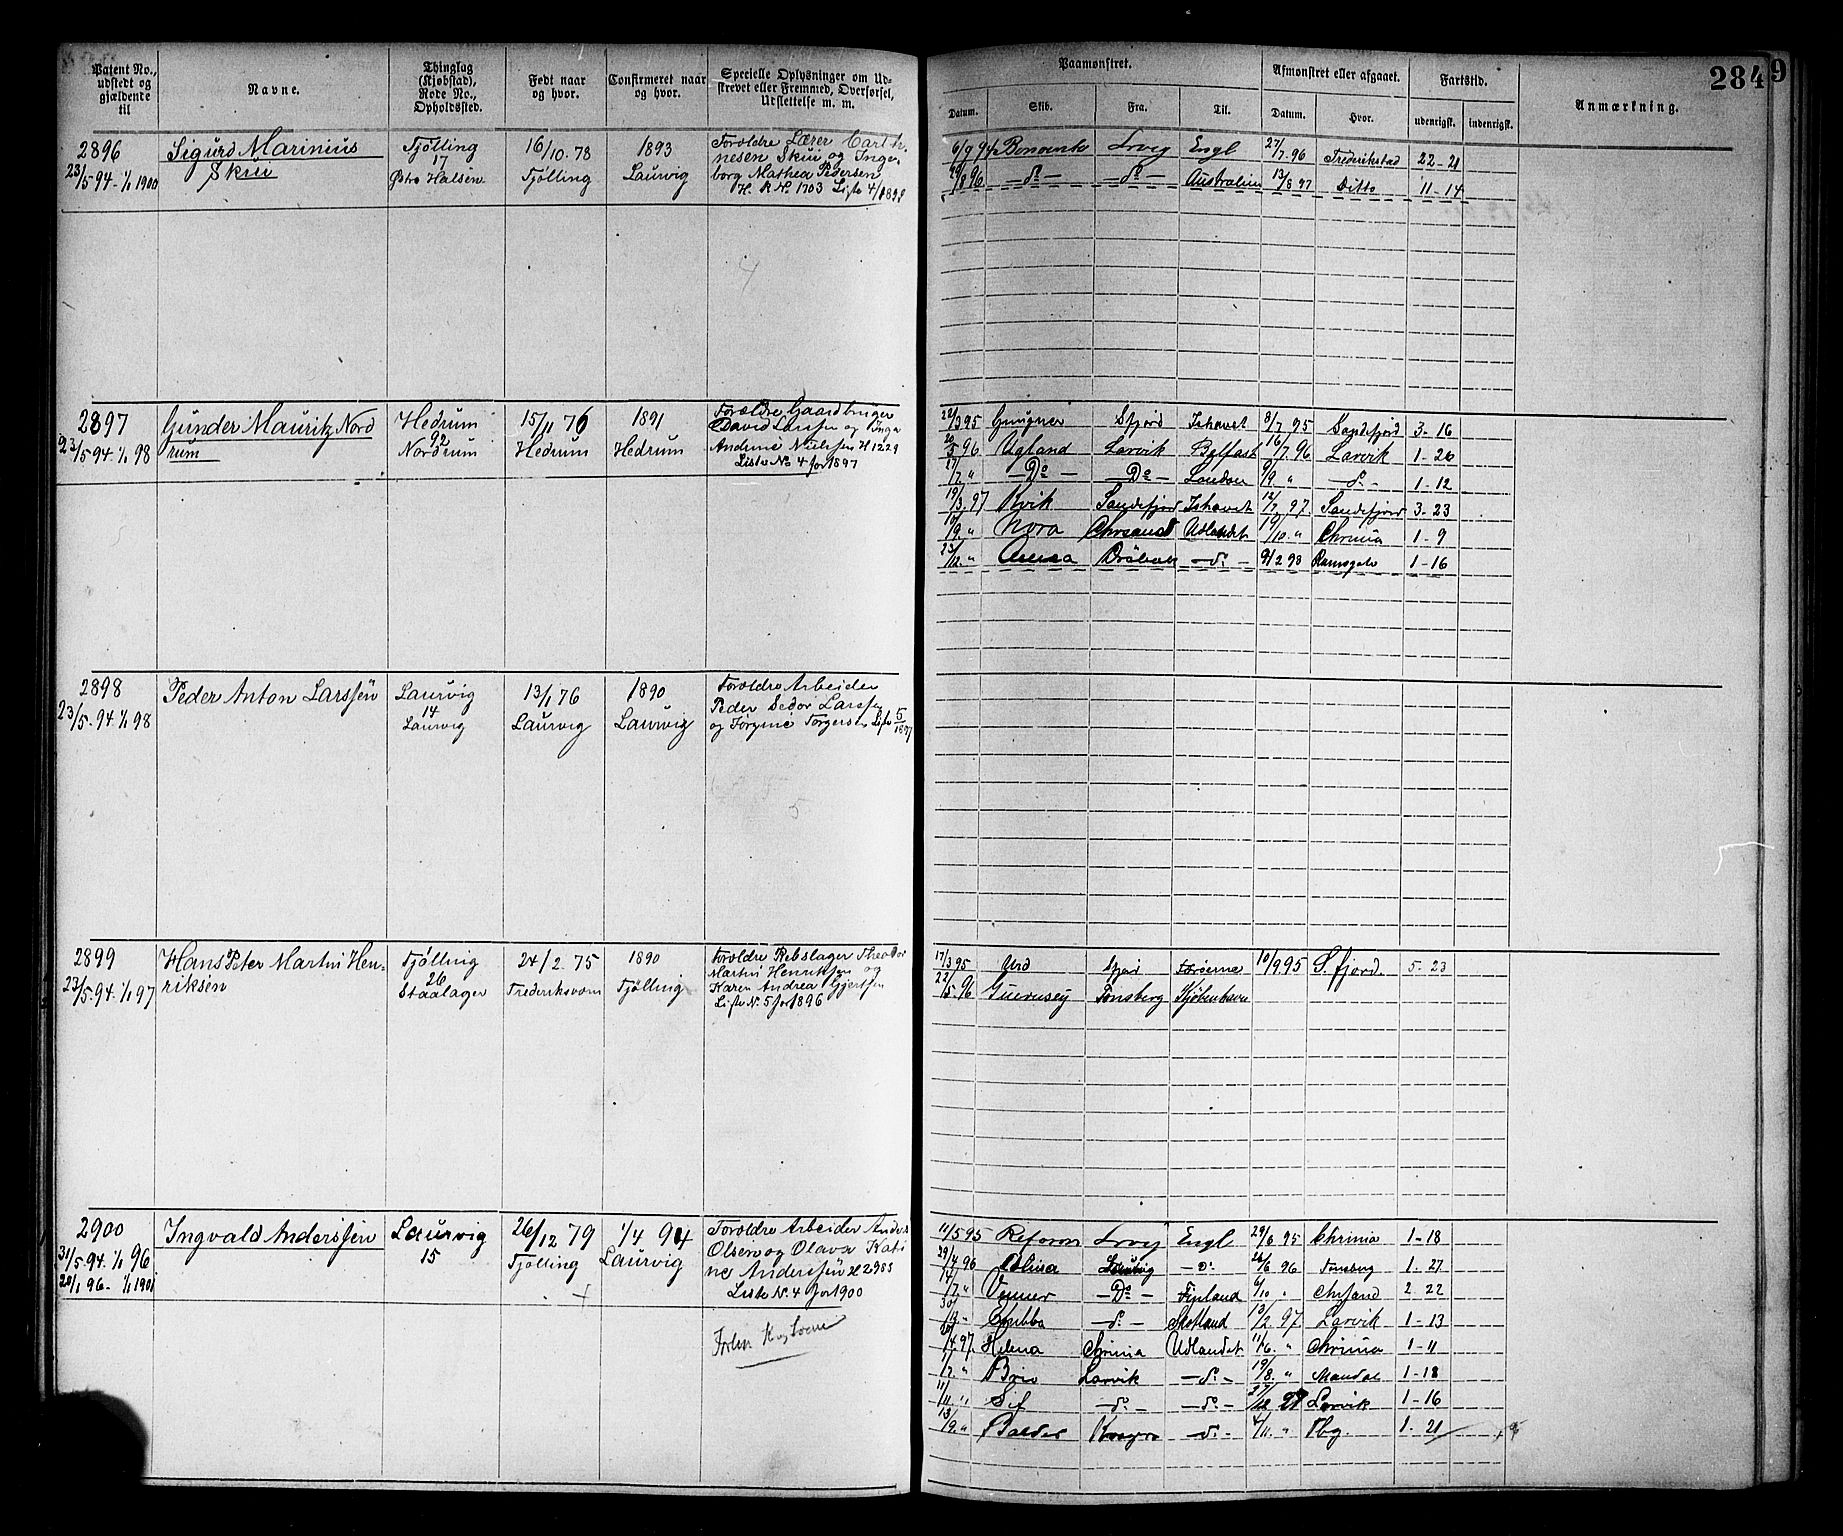 Patent No.,
udstedt og
gjældende
til
Navne.
Thinglag
(Kjøbstad),
Rode No.,
Opholdssted.
Født naar
og hvor.
Confirmeret naar
og hvor.
Specielle Oplysninger om Ud-
skrevet eller Fremmed, Overførsel,
Udslettelse m. m.
2896
23/5 94. 1/1 1900
Sigurd Marinius
Skiu
Tjølling
17
Østre Halsen
16/10. 78
Tjølling
1893
Laurvig
Forældre Lærer Carl
nesen Skiu og Inge-
borg Mathea Pedersen
H. R N. 1703 Liste 4/1899
2897
23/5 94 1/1 98
Gunder Mauritz Nord
rum
Hedrum
92
Nordrum
15/11 76
Hedrum
1891
Hedrum
Forældre Gaardbruger
David Larssen og Inga
Andrine Nielssen H 1229
Liste No 4 for 1897
2898
23/5. 94 1/1 98
Peder Anton Larssen
Laurvig
14
Laurvig
13/1 76
Laurvig
1890
Laurvig
Forældre Arbeider
Peder Larssen
og Torgersen Liste 5/1897
5
2899
23/5. 94. 1/1 97
Hans Peter Martin Hen-
riksen
Tjølling
26
Staalager
24/2. 75
Frederiksværn
1890
Tjølling
Forældre Rebslager Theodor
Martin Henriksen og
Karen Andrea Gjertsen
Liste N. 5 for 1896
2900
31/5. 94. 1/1 96
20/1 96. 1/1 1901
Ingvald Anderssen
Laurvig
15
26/12 79
Tjølling
1/4 94
Laurvig
Forældre Arbeider Anders
Olsen og Olava Kati
ne Anderssen H 2985
Liste N. 4 for 1900
2849
Paamønstret.
Afmønstret eller afgaaet.
Fartstid.
Anmærkning.
Datum.
Skib.
Fra.
Til.
Datum.
Hvor.
udenrigsk.
indenrigsk.
6/9 94 Lrvg Engl 27/7 96 Frederikstad 22 - 21
/8 96 - do - - do - Australien 13/8 97 Ditto 11 - 14
22/3 95 Gungner Sfjord Ishavet 8/7 95 Sandefjord 3 - 16
20/5 96 Ugland Larvik Belfast 16/7 96 Larvik 1 - 26
27/7 " - Do - - Do - London 9/9. " - do - 1 - 12
19/3. 97 Kvik Sandefjord Ishavet 12/7 97 Sandefjord 3 - 23
10/9. " Nora Chrsand Udlandet 19/10. " Chrinia 1 - 9
23/12. " Anna Drøbak - do - 9/2 98 Ramsgate 1 - 16
17/3 95 Urd Sfjord 10/9 95 S.fjord 5 - 23
22/5 96 Guernsey Tønsberg Kjøbenhavn
11/5 95 Reform Lrvg Engl 29/6 95 Chrinia 1 - 18
29/4 96 Alina Laurvig - do - 26/6 96 Tønsberg 1 - 27
14/7. " Venner - Do - Finland 6/10 " Chrsand 2 - 22
- do - Skotland 13/2. 97 Larvik 1 - 13
20/4. 97. Helena Chrinia Udlandet 11/6. " Chrinia 1 - 11
1/7. " Brio Larvik - do - 19/8. " Mandal 1 - 18
11/11. " Sif - do - - do - 27/12 97 Larvik 1 - 16
13/9. " Balder Kragrø - do - 4/11. " Tbg. 1 - 21